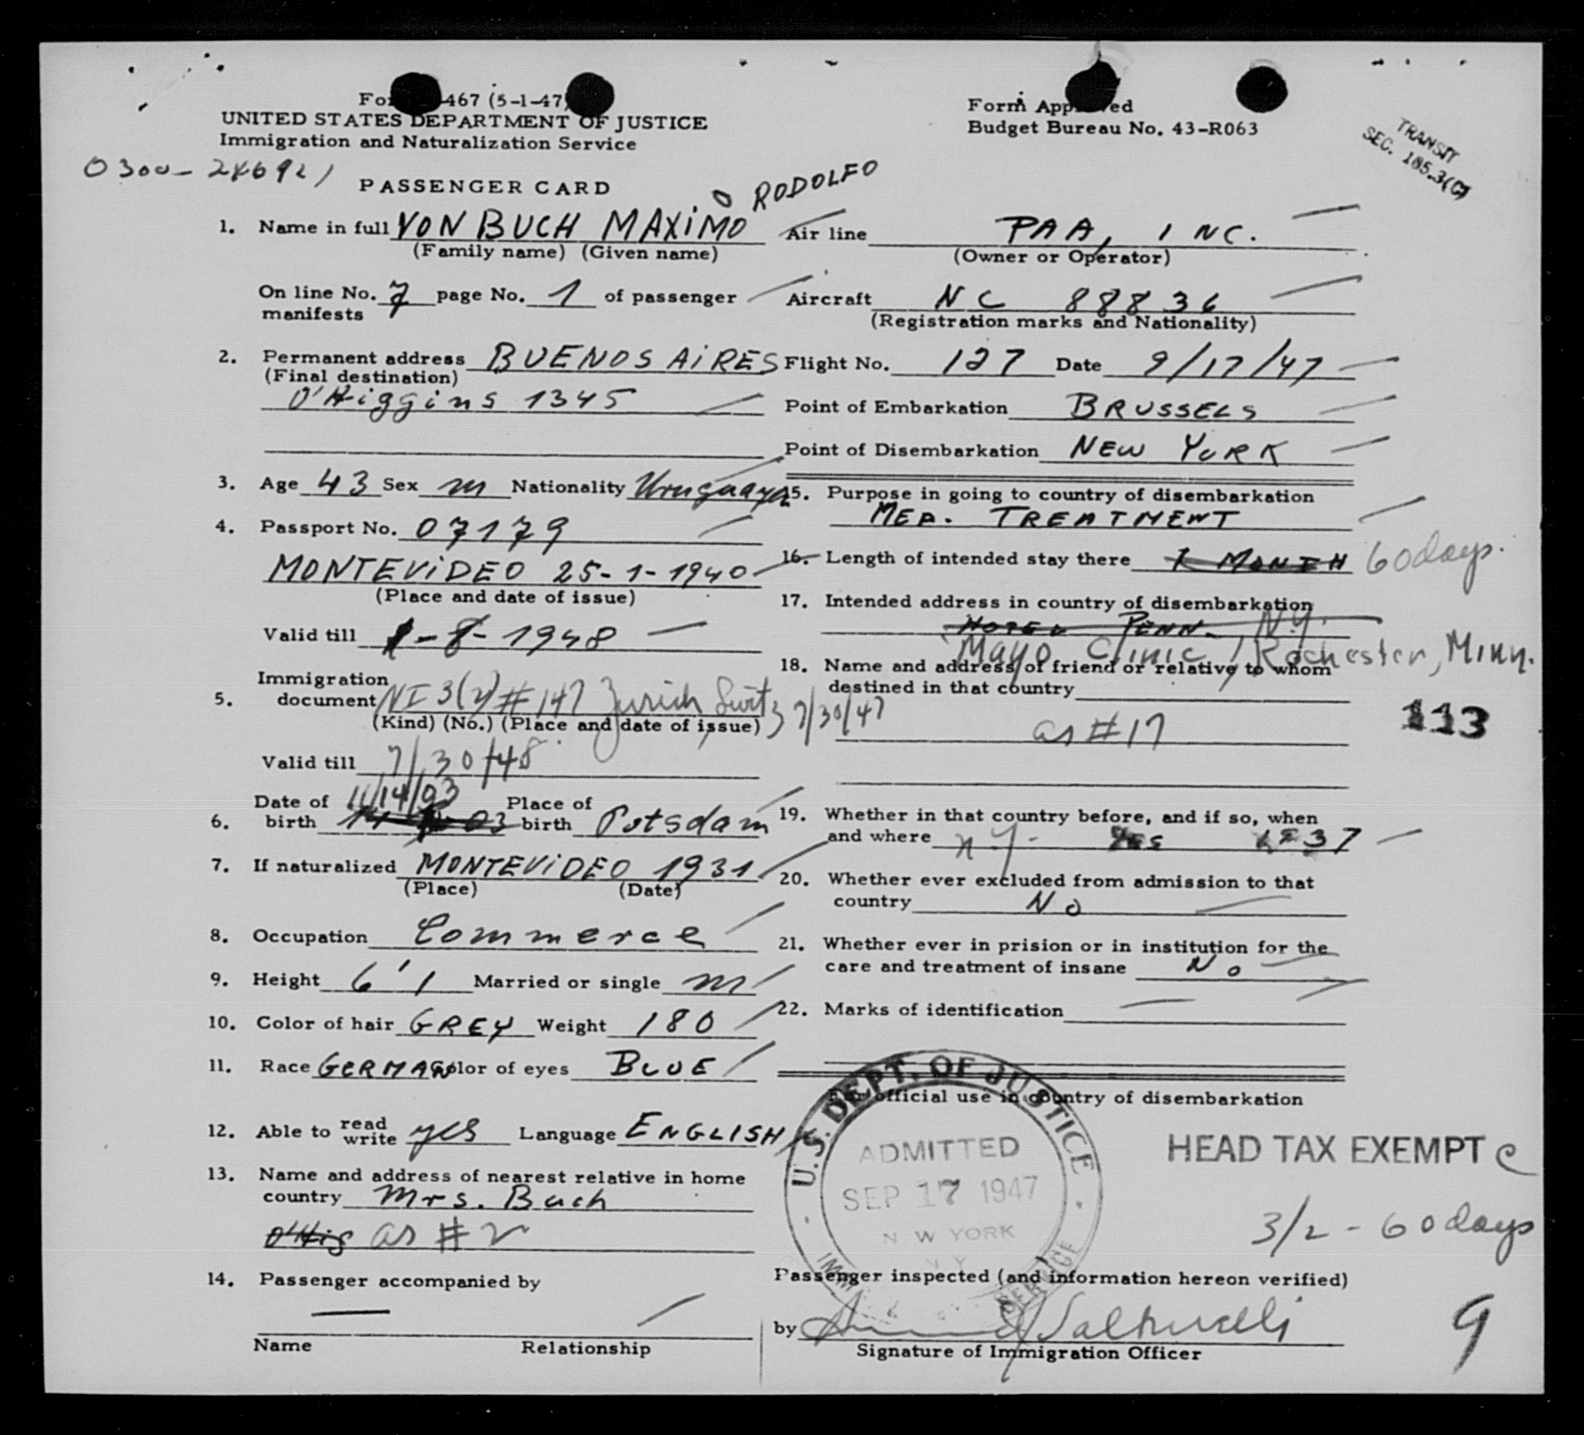 467 (5-1-47)
UNITED STATES DEPARTMENT OF JUSTICE
Immigration and Naturalization Service
Form Approved
Budget Bureau No. 43-R063
TRANSIT
SEC. 185.3(C)
PASSENGER CARD
RODOLFO
1. Name in full VON BUCH MAXIMO
(Family name) (Given name)
On line No. 7 page No. 1 of passenger
manifests
2. Permanent address BUENOS AIRES
(Final destination)
O'Higgins 1345
3. Age 43 Sex m Nationality
4. Passport No. 07179
MONTEVIDEO 25-1-1940
(Place and date of issue)
Valid till 1-8-1948
Immigration
5. document NI 3(2) #147 Zurich Switz 7/30/47
(Kind) (No.) (Place and date of issue)
Valid till 7/30/48
Date of 11/14/03 Place of
6. birth birth Potsdam
7. If naturalized MONTEVIDEO 1931
(Place) (Date)
8. Occupation Commerce
9. Height 6'1 Married or single m
10. Color of hair GREY Weight 180
11. Race GERMAN Color of eyes BLUE
12. Able to read write yes Language ENGLISH
13. Name and address of nearest relative in home
country Mrs. Buch
O'Hig as # 2
14. Passenger accompanied by
—
Name Relationship
Air line PAA, INC.
(Owner or Operator)
Aircraft NC 88836
(Registration marks and Nationality)
Flight No. 127 Date 9/17/47
Point of Embarkation BRUSSELS
Point of Disembarkation NEW YORK
15. Purpose in going to country of disembarkation
MED. TREATMENT
16. Length of intended stay there 1 MONTH 60 days.
17. Intended address in country of disembarkation
HOTEL PENN. N.Y.
Mayo Clinic, Rochester, Minn.
18. Name and address of friend or relative to whom
destined in that country
as #17
113
19. Whether in that country before, and if so, when
and where N.Y. Yes 1937
20. Whether ever excluded from admission to that
country No
21. Whether ever in prision or in institution for the
care and treatment of insane No
22. Marks of identification —
official use in country of disembarkation
U.S. DEPT. OF JUSTICE
ADMITTED
SEP 17 1947
N W YORK
N Y
SERVICE
HEAD TAX EXEMPT
3/2 - 60 days
Passenger inspected (and information hereon verified)
by
Signature of Immigration Officer
9